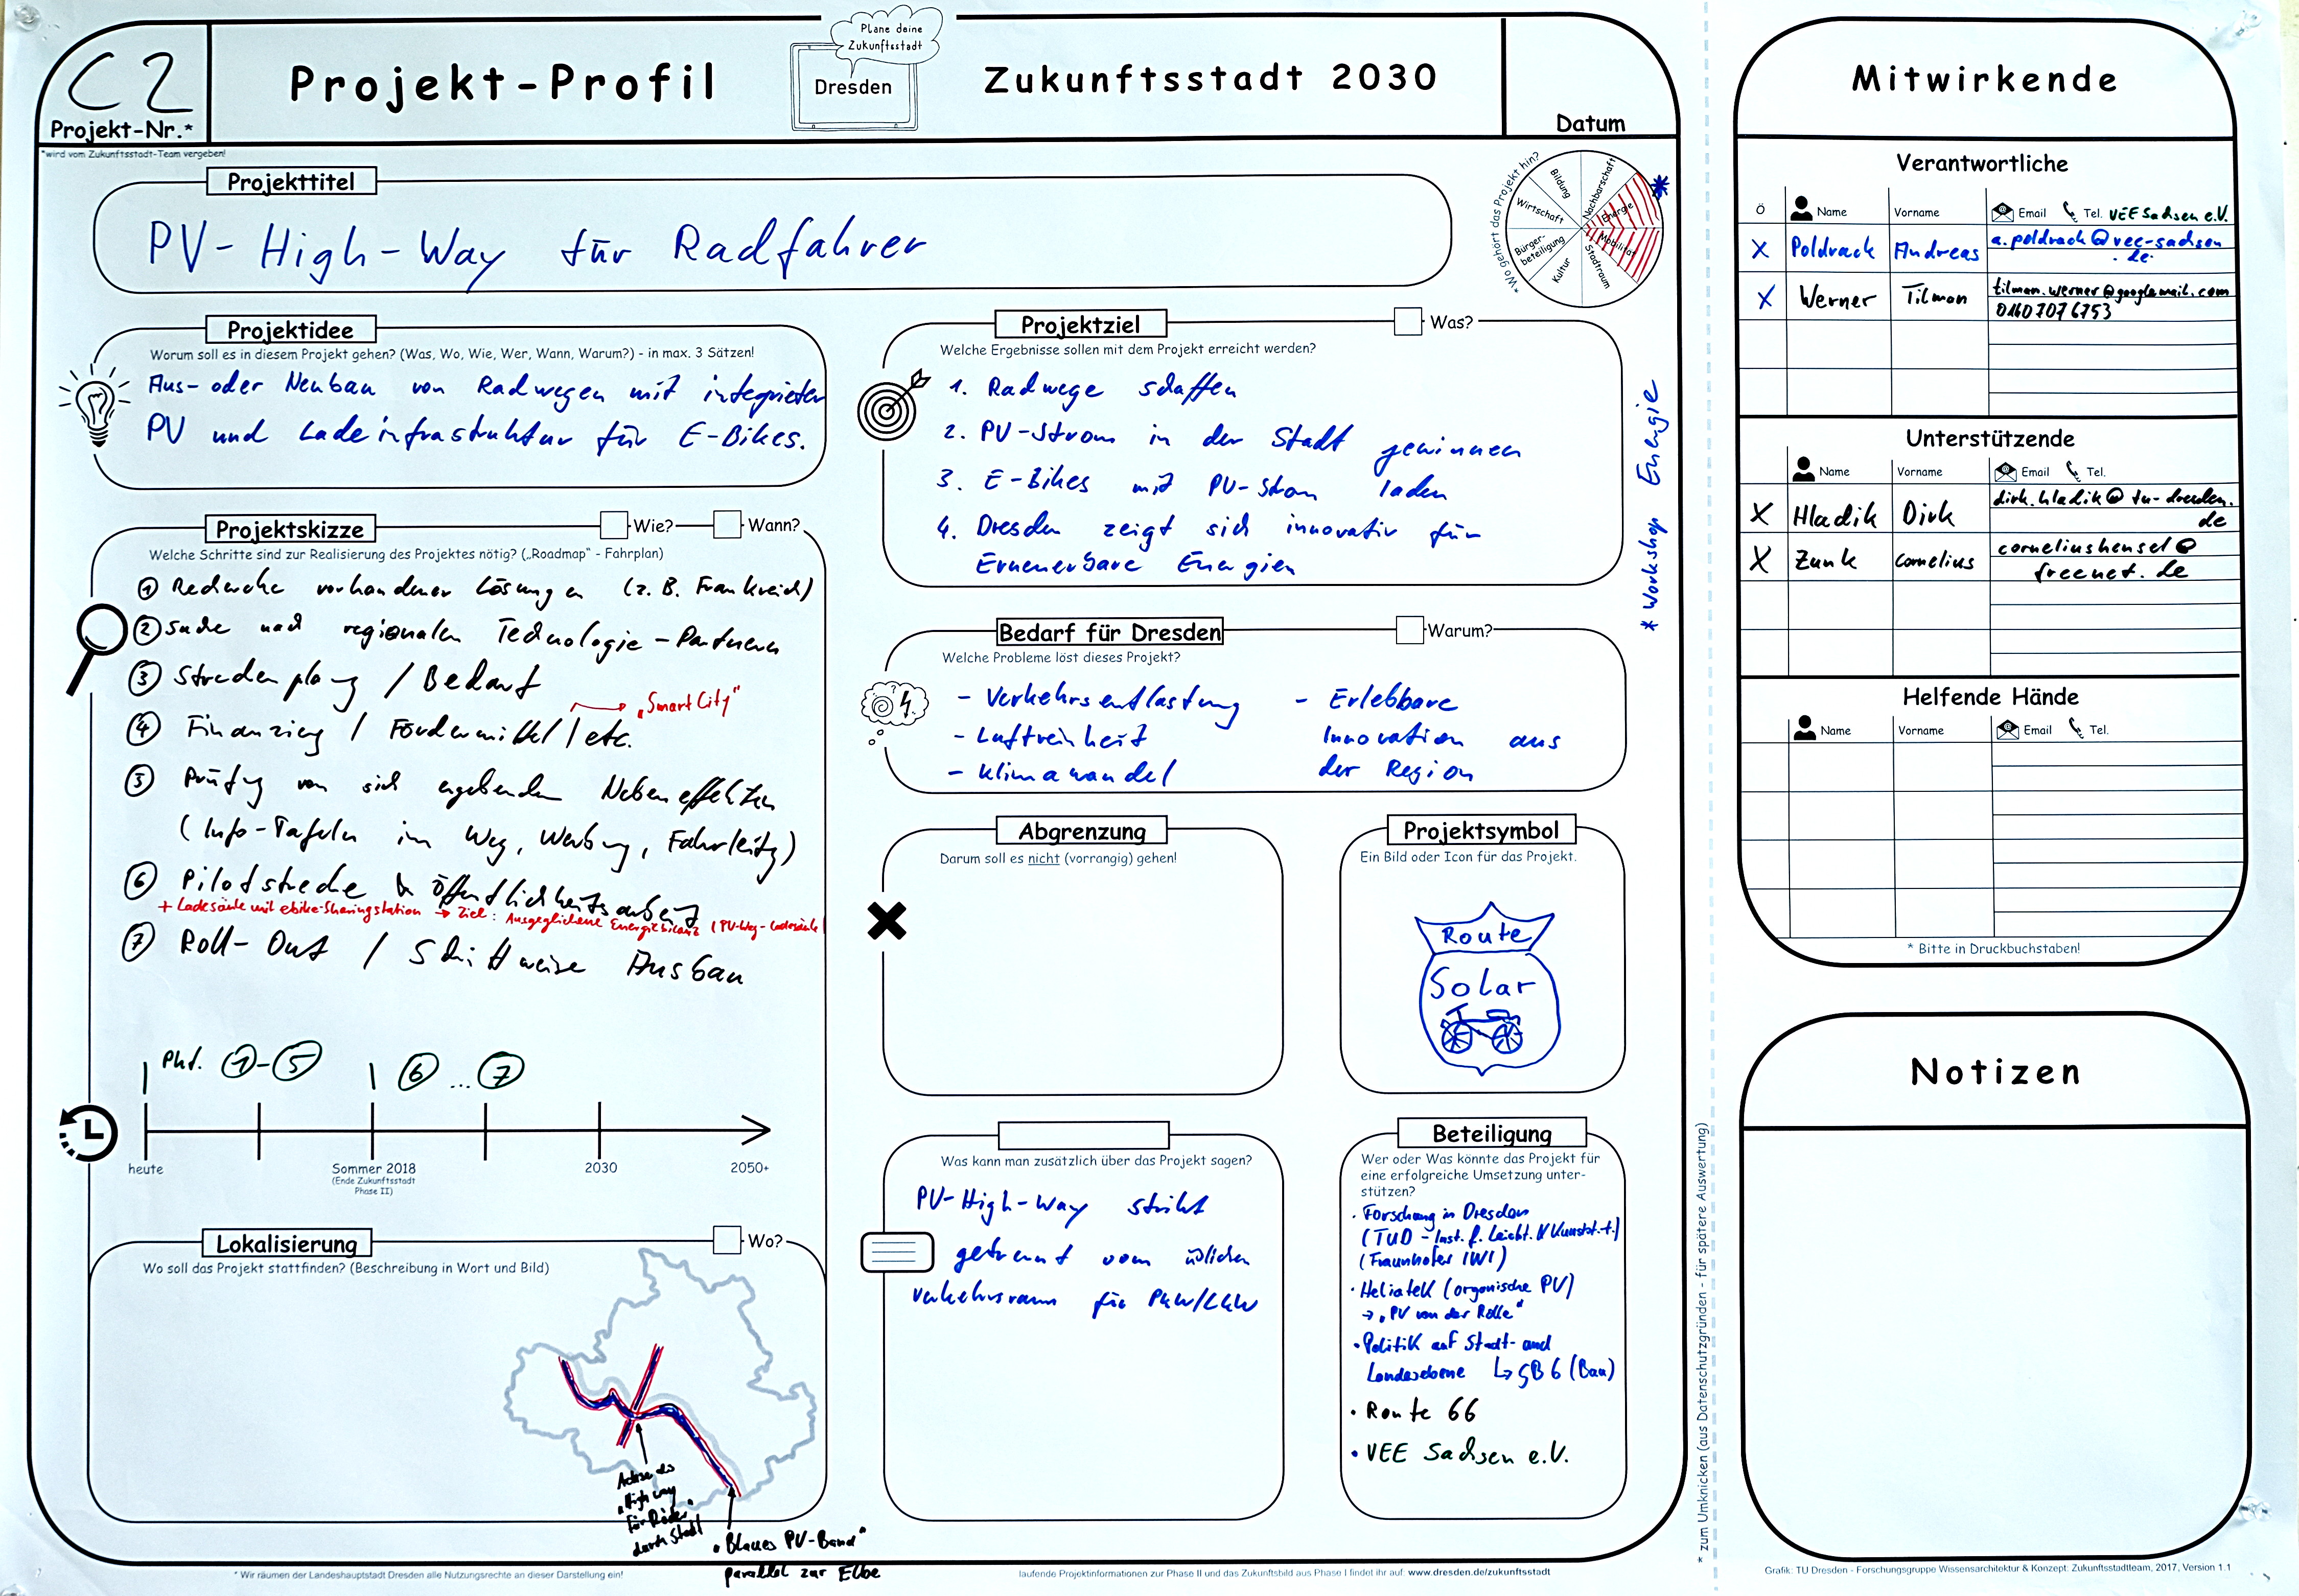 C2
Projekt-Nr.*
Projekt-Profil
Plane deine
Zukunftsstadt
Dresden
Zukunftsstadt 2030
Datum
*wird vom Zukunftsstadt-Team vergeben!
Projekttitel
PV-High-Way für Radfahrer
* Wo gehört das Projekt hin?
Bildung
Nachbarschaft
Wirtschaft
Energie
Bürger-
beteiligung
Mobilität
Kultur
Stadtraum
*
* Workshop Energie
Projektidee
Worum soll es in diesem Projekt gehen? (Was, Wo, Wie, Wer, Wann, Warum?) - in max. 3 Sätzen!
Aus- oder Neubau von Radwegen mit integrierter
PV und Ladeinfrastruktur für E-Bikes.
Projektskizze
Wie?
Wann?
Welche Schritte sind zur Realisierung des Projektes nötig? („Roadmap" - Fahrplan)
① Recherche vorhandener Lösungen (z.B. Frankreich)
② Suche nach regionalen Technologie-Partnern
③ Streckenplang / Bedarf
④ Finanzierg / Fördermittel / etc.
→ „Smart City"
⑤ Prüfg von sich ergebenden Nebeneffekten
(Info-Tafeln im Weg, Werbung, Fahrleitg)
⑥ Pilotstrecke & Öffentlichkeitsarbeit
+ Ladesäule mit ebike-Sharingstation → Ziel: Ausgeglichene Energiebilanz (PV-Weg - Ladesäule)
⑦ Roll-Out / Schrittweise Ausbau
Pkt. ①-⑤
⑥ ... ⑦
heute
Sommer 2018
(Ende Zukunftsstadt
Phase II)
2030
2050+
Lokalisierung
Wo?
Wo soll das Projekt stattfinden? (Beschreibung in Wort und Bild)
Achse als
„High way
für Räder"
durch Stadt
„Blaues PV-Band"
parallel zur Elbe
Projektziel
Was?
Welche Ergebnisse sollen mit dem Projekt erreicht werden?
1. Radwege schaffen
2. PV-Strom in der Stadt gewinnen
3. E-Bikes mit PV-Strom laden
4. Dresden zeigt sich innovativ für
Erneuerbare Energien
Bedarf für Dresden
Warum?
Welche Probleme löst dieses Projekt?
- Verkehrsentlastung
- Luftreinheit
- Klimawandel
- Erlebbare
Innovation aus
der Region
Abgrenzung
Darum soll es nicht (vorrangig) gehen!
Projektsymbol
Ein Bild oder Icon für das Projekt.
Route
Solar
Was kann man zusätzlich über das Projekt sagen?
PV-High-Way strikt
getrennt vom üblichen
Verkehrsraum für PKW/LKW
Beteiligung
Wer oder Was könnte das Projekt für
eine erfolgreiche Umsetzung unter-
stützen?
· Forschung in Dresden
(TUD - Inst. f. Leichtb. & Kunstst.t.)
(Fraunhofer IWI)
· Heliatek (organische PV)
→ „PV von der Rolle"
· Politik auf Stadt- und
Landesebene ↳ GB 6 (Bau)
· Route 66
· VEE Sachsen e.V.
* zum Umknicken (aus Datenschutzgründen - für spätere Auswertung)
* Wir räumen der Landeshauptstadt Dresden alle Nutzungsrechte an dieser Darstellung ein!
laufende Projektinformationen zur Phase II und das Zukunftsbild aus Phase I findet ihr auf: www.dresden.de/zukunftsstadt
Mitwirkende
Verantwortliche
Ö Name Vorname Email Tel. VEE Sachsen e.V.
X Poldrack Andreas a.poldrack@vee-sachsen
.de
X Werner Tilman tilman.werner@googlemail.com
01607076753
Unterstützende
Name Vorname Email Tel.
X Hladik Dirk dirk.hladik@tu-dresden.
de
X Zunk Cornelius corneliushensel@
freenet.de
Helfende Hände
Name Vorname Email Tel.
* Bitte in Druckbuchstaben!
Notizen
Grafik: TU Dresden - Forschungsgruppe Wissensarchitektur & Konzept: Zukunftsstadtteam, 2017, Version 1.1